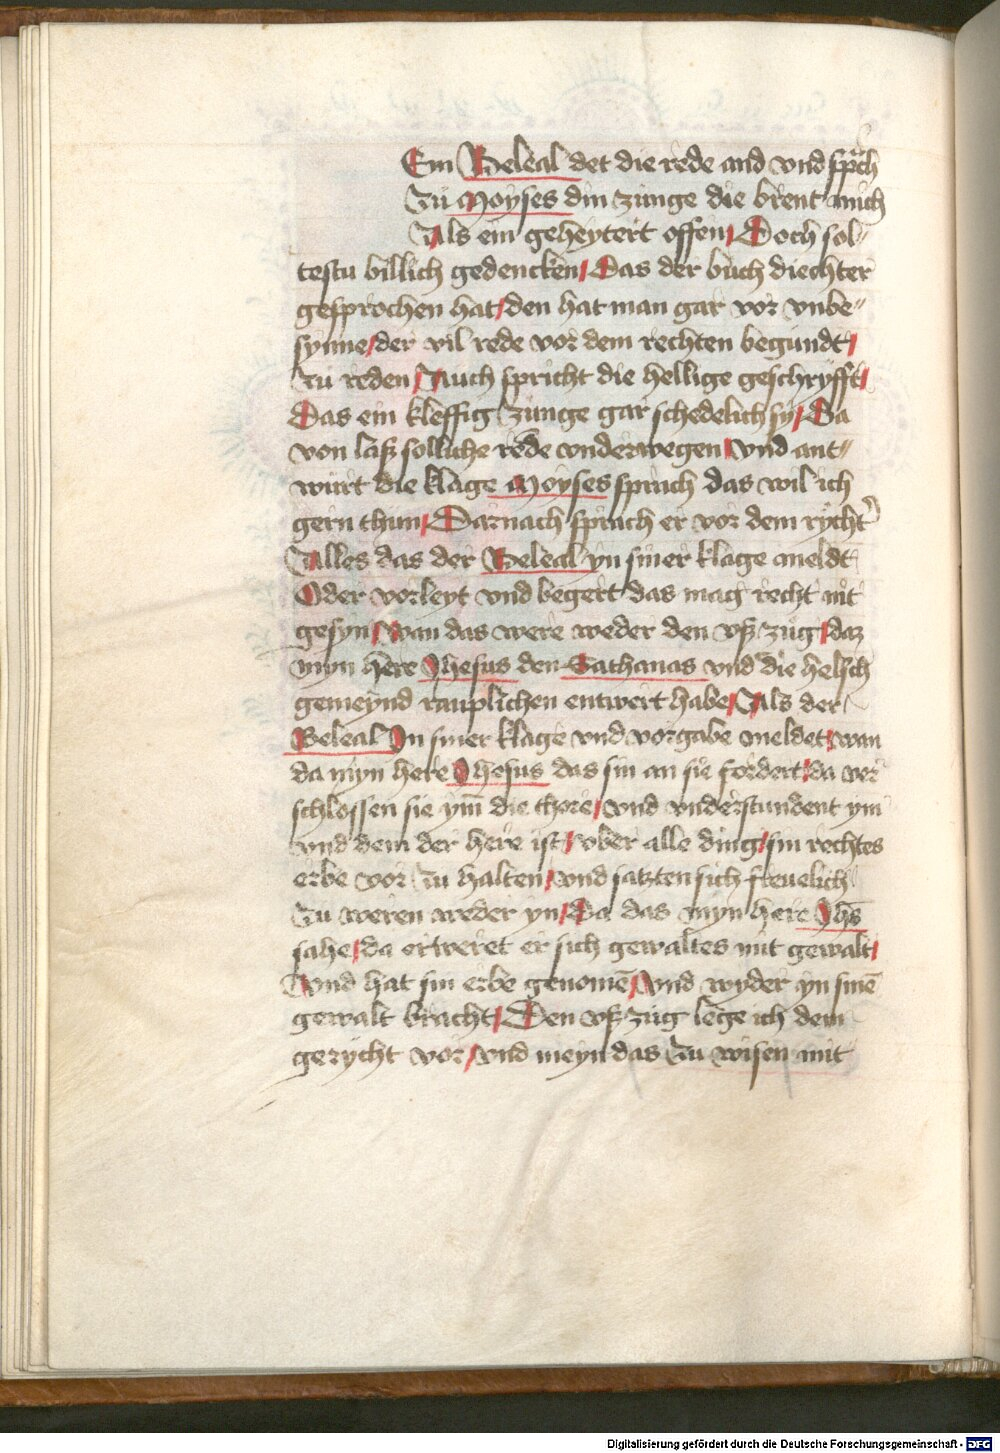 Em Beleal det die rede and vnd sprch
Zu Moyses din zunge die brent mich
Als ein geheytert offen / Doch sol⸗
testu billich gedencken / Das der buch diechter
gesprochen hat / den hat man gar vor vnbe⸗
synne / der vil rede vor dem rechten begundt /
Zu reden / Auch spricht die hellige geschryfft /
Das ein kleffig zunge gar schedelich sy / Da
von laß solliche rede vnderwegen / vnd ant⸗
würt die klage Moyses sprach das wil ich
gern thun / Darnach sprach er vor dem rycht
Alles das der Beleal yn siner klage meldt
Oder vorleyt vnd begert das mag recht nit
gesyn / wan das were weder den vß zug / daz
myn here Jhesus den Sathanas vnd die helsch
gemeynd rauplichen entwert habe / Als der
Beleal In siner klage vnd vorgabe meldet / wan
da myn here Jhesus das sin an sie fordert / da ver
schlossen sie ym̄ die thore / vnd vnderstundent ym
vnd dem der here ist / vber alle ding / sin rechtes
erbe vor Zu halten / vnd satzten sich freuelich
Zu weren weder yn / Da das myn here Jhs̄
sahe / da erweret er sich gewaltes mit gewalt /
Vnd hat sin erbe genomē / vnd wyder yn sinē
gewalt bracht / Den vß zug lege ich dem
gerycht vor / vnd meyn das Zu wisen mit
Digitalisierung gefördert durch die Deutsche Forschungsgemeinschaft - DFG